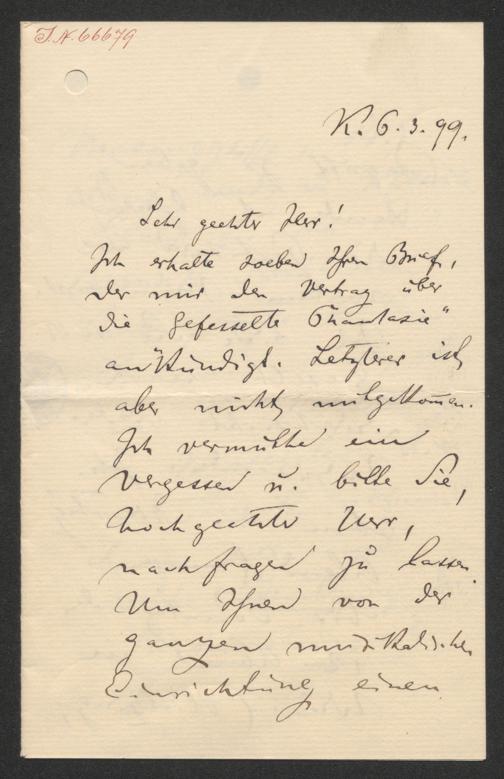 I.N. 66679
K. 6. 3. 99.
Sehr geehrter Herr!
Ich erhalte soeben Ihren Brief,
der mir den Vertrag über
die „Gefesselte Phantasie"
ankündigt. Letzterer ist
aber nicht mitgekommen.
Ich vermuthe ein
Vergessen u. bitte Sie,
hochgeehrter Herr,
nachfragen zu lassen.
Um Ihnen von der
ganzen musikalischen
Einrichtung einen